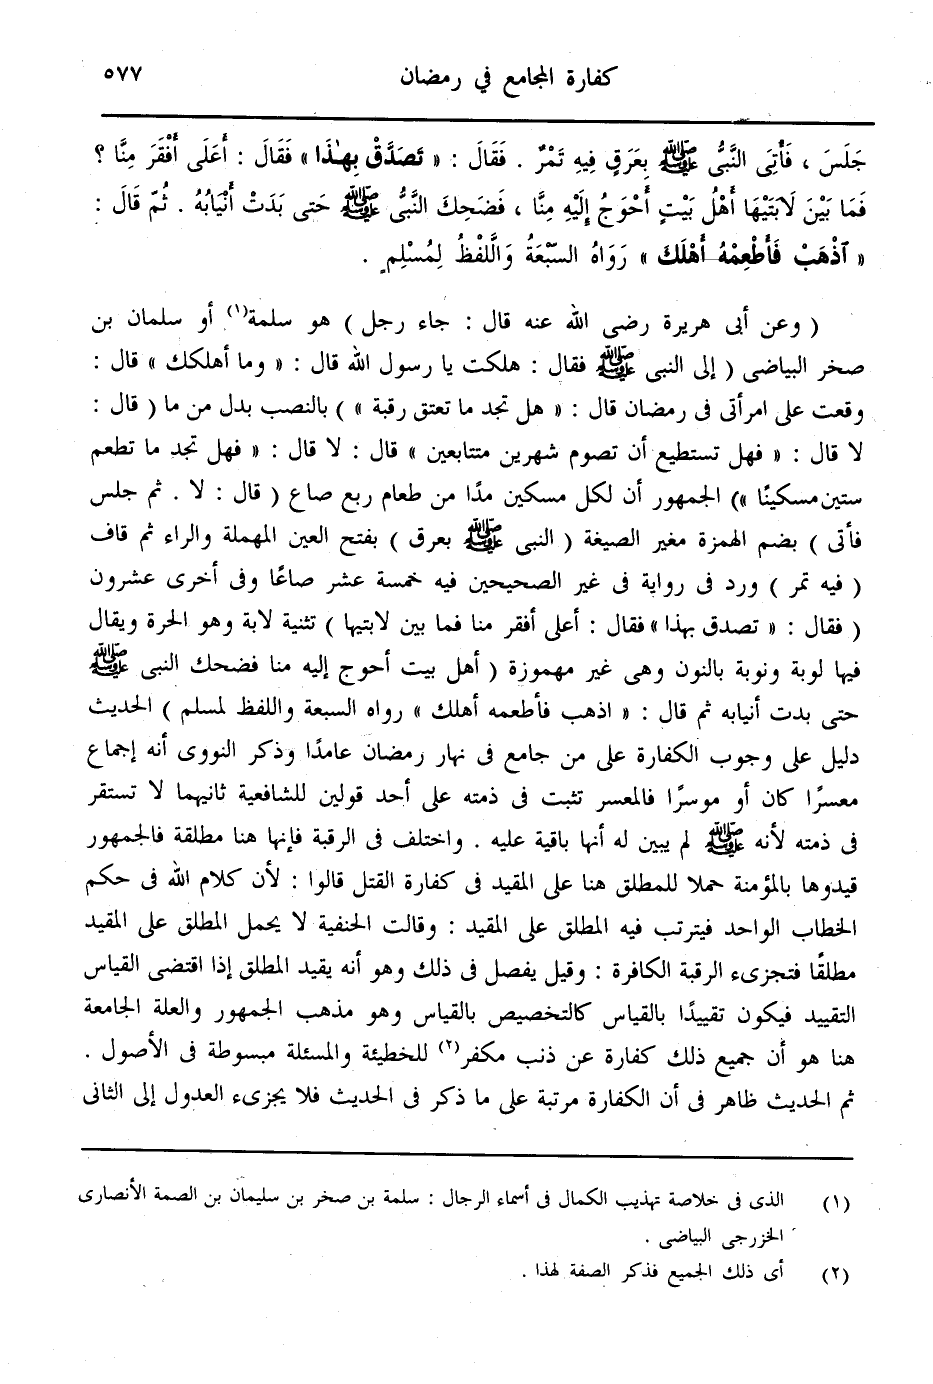 كفارة المجامع في رمضان ٥٧٧
جَلَسَ ، فَأُتِىَ النَّبىُّ ﷺ بِعَرَقٍ فِيهِ تَمْرٌ . فَقَالَ : « تَصَدَّقْ بِهٰذَا » فَقَالَ : أَعَلَى أَفْقَرَ مِنَّا ؟
فَمَا بَيْنَ لَابَتَيْهَا أَهْلُ بَيْتٍ أَحْوَجُ إِلَيْهِ مِنَّا ، فَضَحِكَ النَّبىُّ ﷺ حَتى بَدَتْ أَنْيَابُهُ . ثُمّ قَالَ :
« ٱذْهَبْ فَأَطْعِمْهُ أَهْلَكَ » رَوَاهُ السّبْعَةُ وَالَّلفْظُ لِمُسْلِمٍ .
( وعن أبى هريرة رضى الله عنه قال : جاء رجل ) هو سلمة(١) أو سلمان بن
صخر البياضى ( إلى النبى ﷺ فقال : هلكت يا رسول الله قال : « وما أهلكك » قال :
وقعت على امرأتى فى رمضان قال : « هل تجد ما تعتق رقبة » ) بالنصب بدل من ما ( قال :
لا قال : « فهل تستطيع أن تصوم شهرين متتابعين » قال : لا قال : « فهل تجد ما تطعم
ستين مسكينًا » ) الجمهور أن لكل مسكين مدًا من طعام ربع صاع ( قال : لا . ثم جلس
فأتى ) بضم الهمزة مغير الصيغة ( النبى ﷺ بعرق ) بفتح العين المهملة والراء ثم قاف
( فيه تمر ) ورد فى رواية فى غير الصحيحين فيه خمسة عشر صاعًا وفى أخرى عشرون
( فقال : « تصدق بهذا » فقال : أعلى أفقر منا فما بين لابتيها ) تثنية لابة وهو الحرة ويقال
فيها لوبة ونوبة بالنون وهى غير مهموزة ( أهل بيت أحوج إليه منا فضحك النبى ﷺ
حتى بدت أنيابه ثم قال : « اذهب فأطعمه أهلك » رواه السبعة واللفظ لمسلم ) الحديث
دليل على وجوب الكفارة على من جامع فى نهار رمضان عامدًا وذكر النووى أنه إجماع
معسرًا كان أو موسرًا فالمعسر تثبت فى ذمته على أحد قولين للشافعية ثانيهما لا تستقر
فى ذمته لأنه ﷺ لم يبين له أنها باقية عليه . واختلف فى الرقبة فإنها هنا مطلقة فالجمهور
قيدوها بالمؤمنة حملا للمطلق هنا على المقيد فى كفارة القتل قالوا : لأن كلام الله فى حكم
الخطاب الواحد فيترتب فيه المطلق على المقيد : وقالت الحنفية لا يحمل المطلق على المقيد
مطلقًا فتجزىء الرقبة الكافرة : وقيل يفصل فى ذلك وهو أنه يقيد المطلق إذا اقتضى القياس
التقييد فيكون تقييدًا بالقياس كالتخصيص بالقياس وهو مذهب الجمهور والعلة الجامعة
هنا هو أن جميع ذلك كفارة عن ذنب مكفر(٢) للخطيئة والمسئلة مبسوطة فى الأصول .
ثم الحديث ظاهر فى أن الكفارة مرتبة على ما ذكر فى الحديث فلا يجزىء العدول إلى الثانى
(١) الذى فى خلاصة تهذيب الكمال فى أسماء الرجال : سلمة بن صخر بن سليمان بن الصمة الأنصارى
الخزرجى البياضى .
(٢) أى ذلك الجميع فذكر الصفة لهذا .